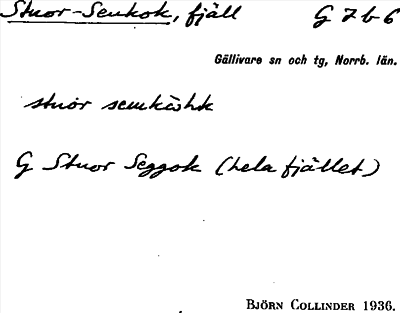 Stuor-Seukok, fjäll G 7 b 6
Gällivare sn och tg, Norrb. län.
stuor
G Stuor Seggok (hela fjället)
BJÖRN COLLINDER 1936.